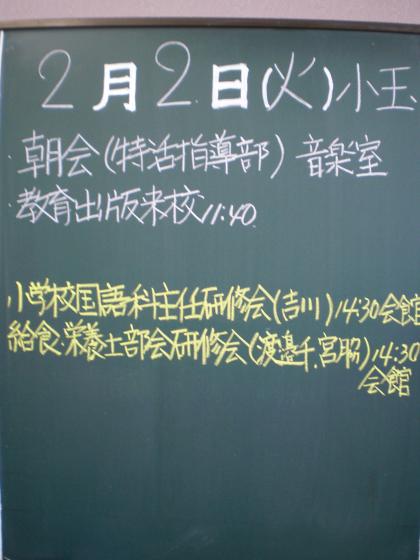 2月2日(火)小玉
・朝会(特活指導部) 音楽室
・教育出版来校11:40
小学校国語科主任研修会(吉川)14:30会館
給食・栄養士部会研修会(渡邉千、宮脇)14:30
会館